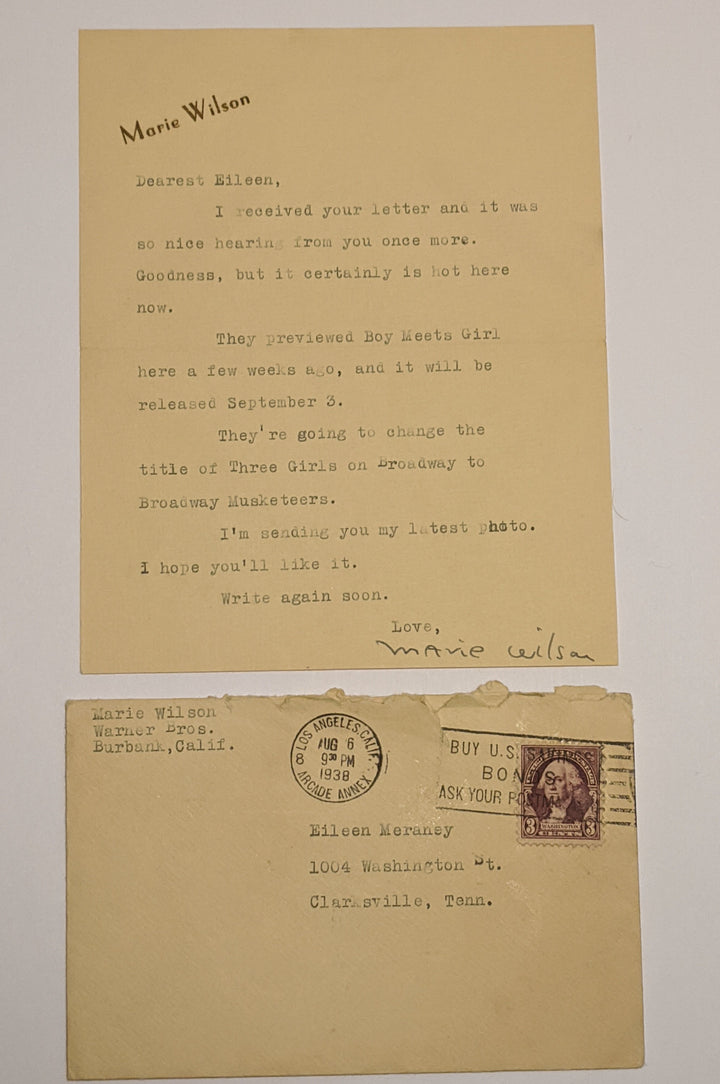 Marie Wilson
Dearest Eileen,
I received your letter and it was
so nice hearing from you once more.
Goodness, but it certainly is hot here
now.
They previewed Boy Meets Girl
here a few weeks ago, and it will be
released September 3.
They're going to change the
title of Three Girls on Broadway to
Broadway Musketeers.
I'm sending you my latest photo.
I hope you'll like it.
Write again soon.
Love,
Marie Wilson
Marie Wilson
Warner Bros.
Burbank,Calif.
LOS ANGELES, CALIF.
AUG 6
8 930 PM
1938
ARCADE ANNEX
BUY U.S. SAVINGS
BONDS
ASK YOUR POSTMASTER
3 WASHINGTON 3
Eileen Meraney
1004 Washington St.
Clarksville, Tenn.